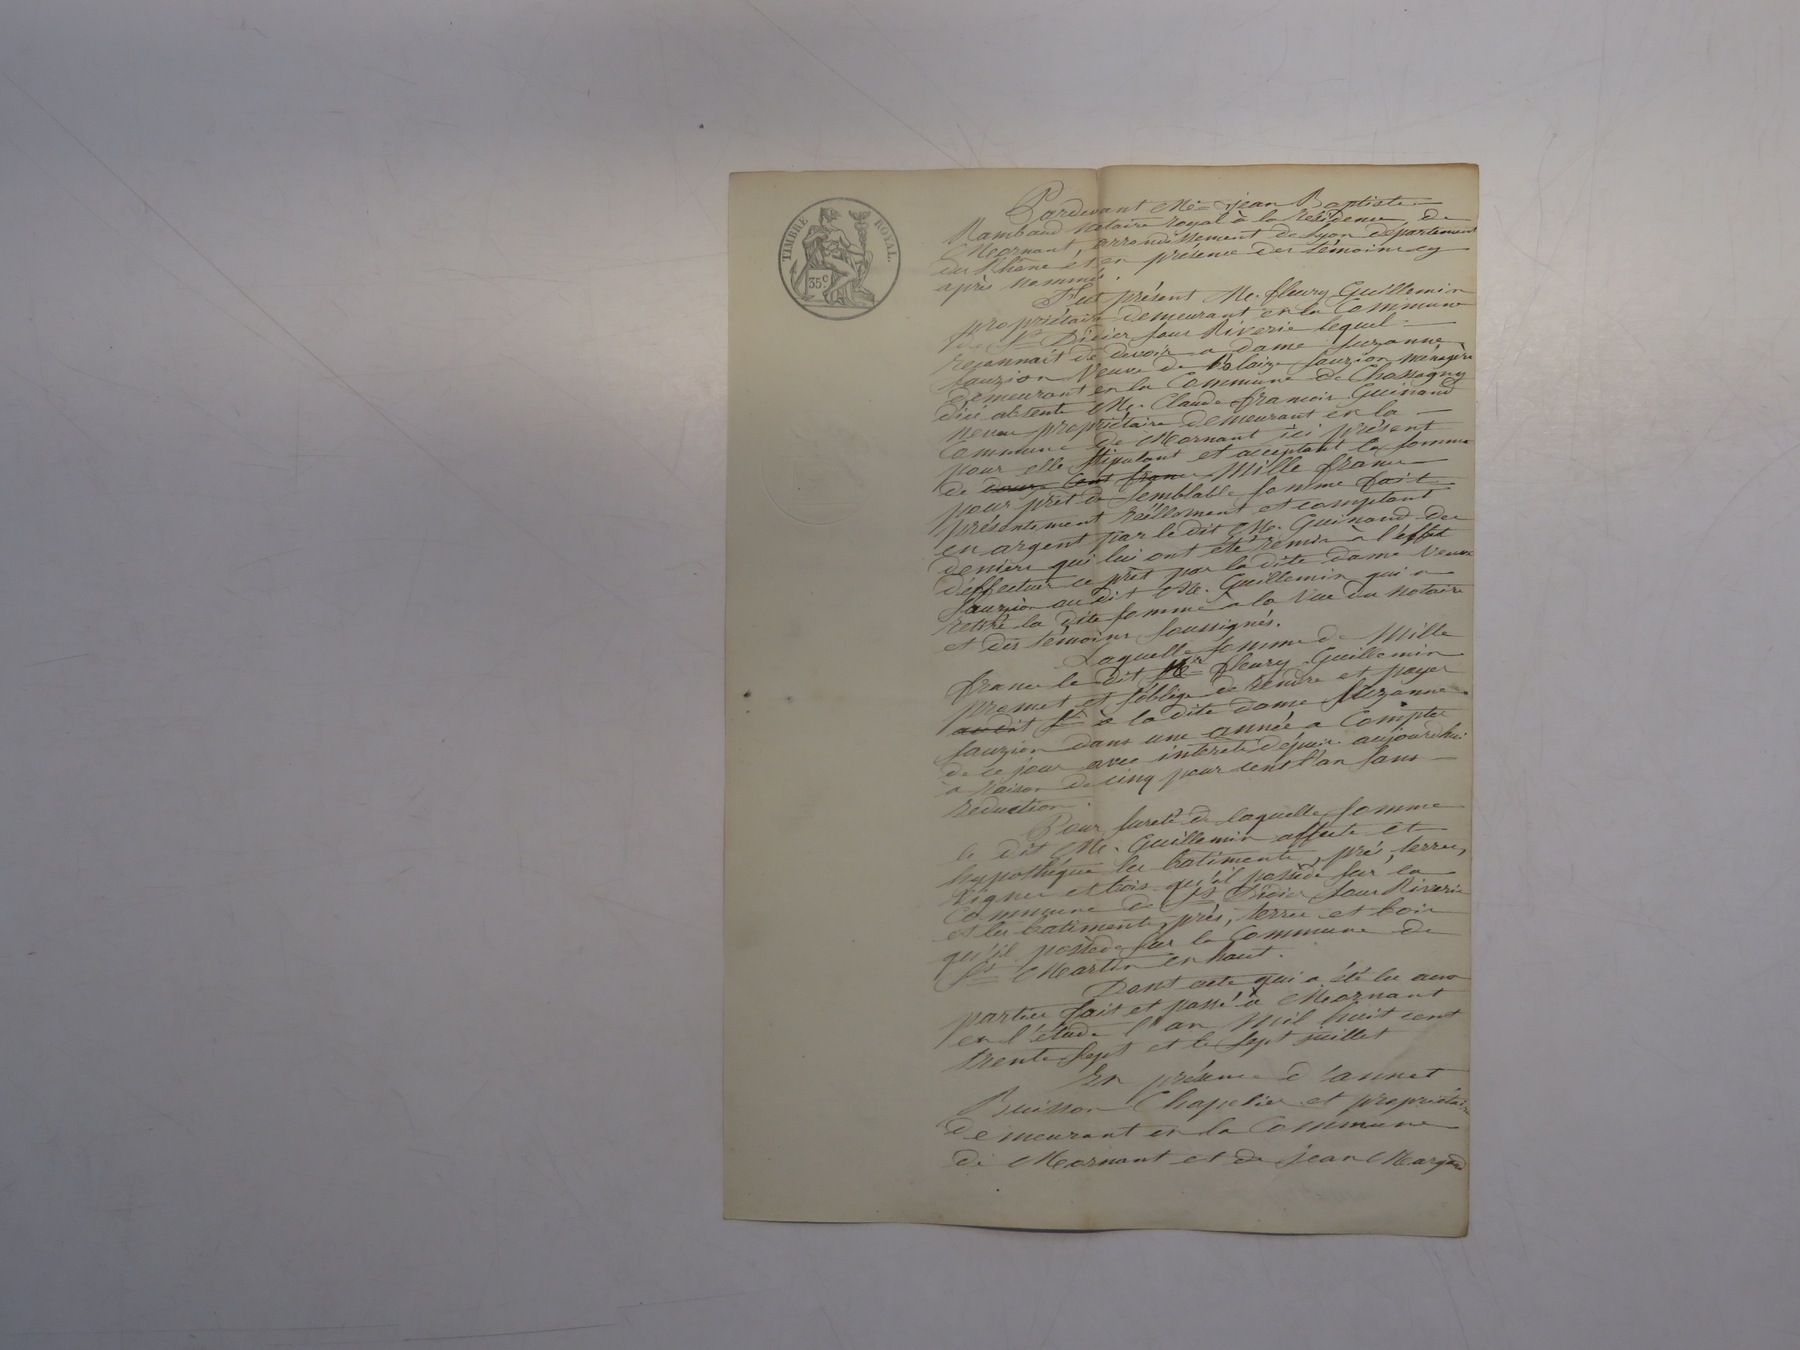 TIMBRE ROYAL.
35c
Pardevant Me jean Baptiste
Rambaud notaire royal à la résidence de
Mornant, arrondissement de Lyon département
du Rhône et en présence des témoins cy
après nommés.
Fut présent Mr. fleury Guillemin
propriétaire demeurant en la Commune
de St Didier sous Riverie lequel
reconnait de devoir a dame Suzanne
Sauzion Veuve de Blaize Sauzion ménagère
demeurant en la Commune de Chassagny
d'ici absente Mr. Claude françois Guinand
neveu propriétaire demeurant en la
Commune de Mornant ici présent
pour elle stipulant et acceptant la somme
de douze Cent franc Mille francs
pour prêt de semblable somme fait
présentement réellement et comptant
en argent par le dit Mr. Guinand des
deniers qui lui ont été remis a l'éffet
d'éffectuer ce prêt par la dite dame Veuve
Sauzion au dit Mr. Guillemin qui a
retiré la dite somme a la Vue du notaire
et des témoins soussignés.
Laquelle somme de Mille
francs le dit Mr fleury Guillemin
promet et s'oblige de rendre et payer
au dit Sr à la dite dame Suzanne
Sauzion dans une année a Compter
de ce jour avec intérêts dépuis aujourdhui
à raison de cinq pour cent l'an sans
réduction.
Pour sureté de laquelle somme
le dit Mr. Guillemin affecte et
hypothéque les batiments, prés, terres,
vignes et bois qu'il possède sur la
Commune de St Didier sous Riverie
et les batiments, prés, terres et bois
qu'il possède sur la Commune de
St Martin en haut.
Dont acte qui a été lu aux
parties fait et passé à Mornant
en l'étude l'an Mil huit cent
trente sept et le sept juillet
En présence d'annet
Buisson Chapelier et propriétaire
demeurant en la Commune
de Mornant et de jean